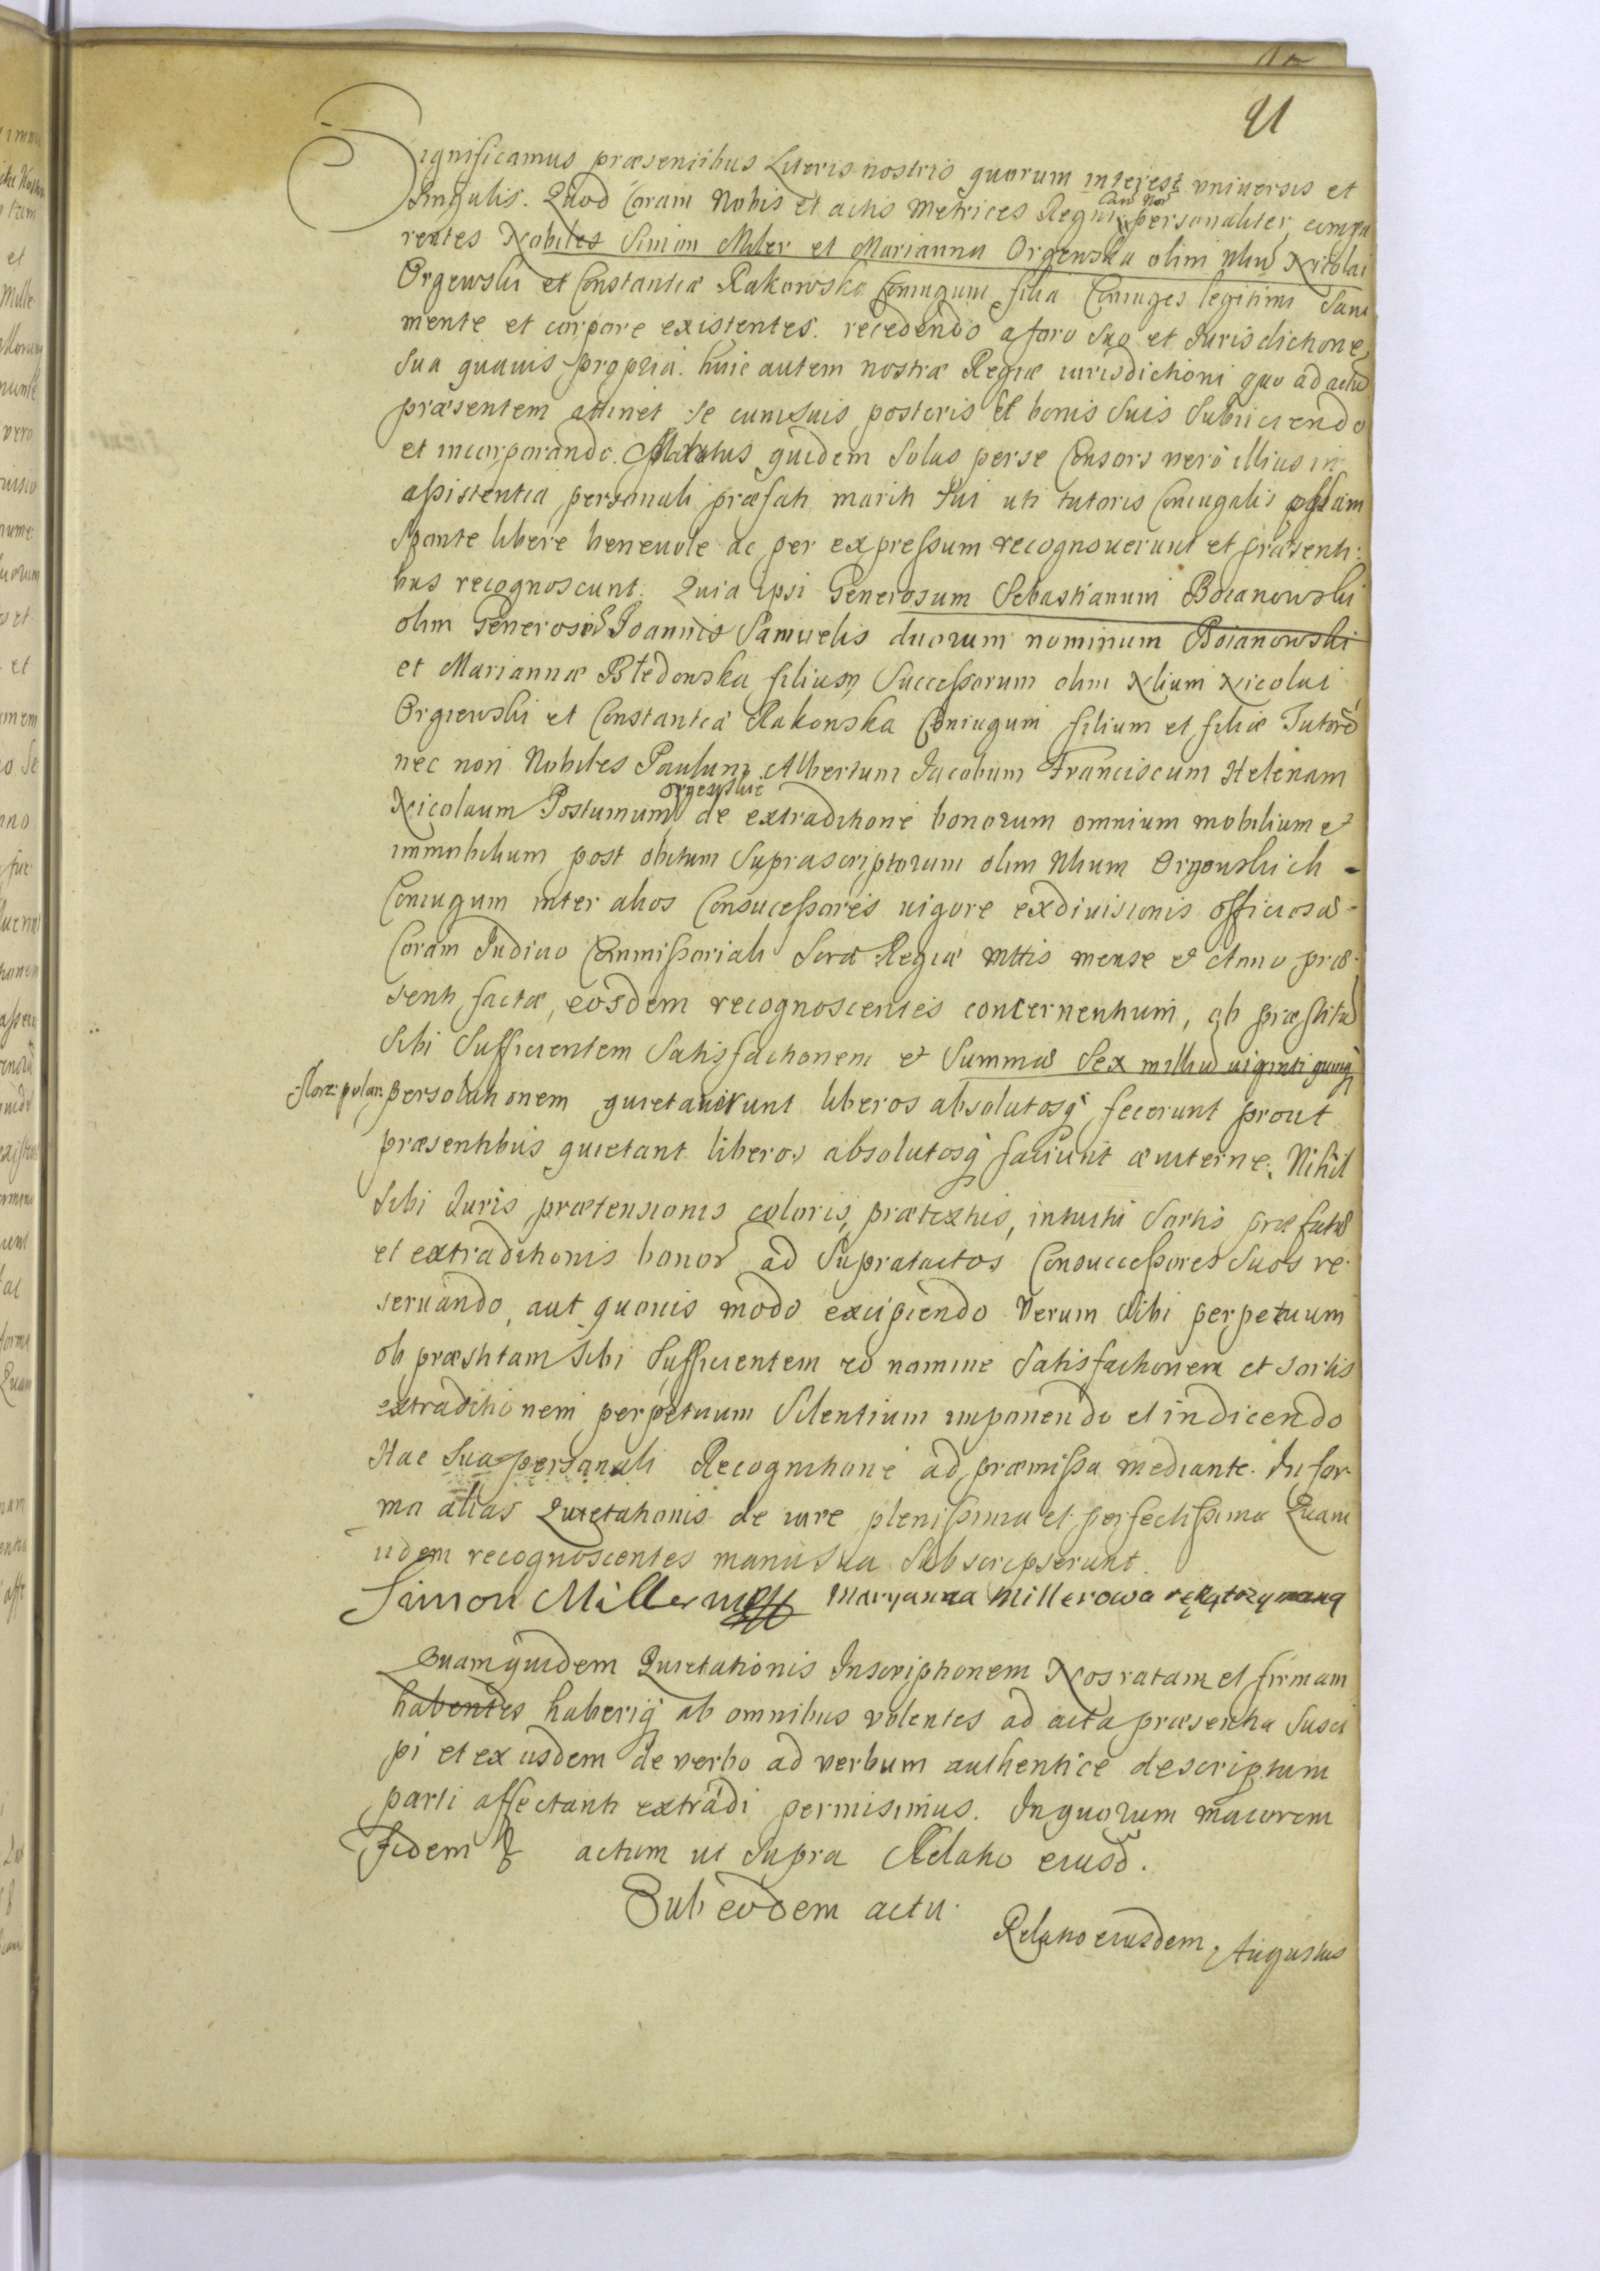 21
Significamus præsentibus Literis nostris quorum interest vniuersis et
singulis. Quod Coram Nobis et actis Metrices Regni personaliter compa
rentes Nobiles Simon Miler et Marianna Orgewska olim Nliũ Nicolai
Orgewski et Constantiæ Rakowska Coniugum filia Coniuges legitimi Sani
mente et corpore existentes. recedendo a foro Suo et Jurisdictione
sua quauis propria. huic autem nostræ Regiæ iurisdictioni quo ad actũ
præsentem attinet se cum suis posteris et bonis suis subiiciendo
et incorporando. Maritus quidem solus per se Consors verò illius in
assistentia personali præfati mariti sui uti tutoris Coniugalis
sponte libere beneuole ac per expressum recognouerunt et præsenti:
bus recognoscunt. Quia ipsi Generosum Sebastianum Boianowski
olim Generosi Joannis Samuelis duorum nominum Boianowski
et Mariannæ Błedowska filium Successorum olim Nlium Nicolai
Orgiewski et Constantiæ Rakonska Coniugum filium et filiæ Tutorẽ
nec non Nobiles Paulum Albertum Jacobum Franciscum Helenam
Orgewskie
Nicolaum Postumum de extraditione bonorum omnium mobilium et
immobilium post obitum supra scriptorum olim Nlium Orgewskich
Coniugum inter alios Consucessores uigore exdiuisionis officiosæ
Coram Iudicio Commissoriali Sacræ Regiæ Mttis mense et Anno præ
senti factæ, eosdem recognoscentes concernentium, ob præstitã
sibi sufficientem satisfactionem et summæ sex milliũ uiginti quinq
flore: polon: persolutionem quietauerunt liberos absolutosq fecerunt prout
præsentibus quietant liberos absolutosq faciunt æuiterne. Nihil
sibi Iuris prætensionis coloris, prætextus, intuitu sortis præfatæ
et extraditionis honor ad supratactos Consuccessores suos re
seruando, aut quouis modo excipiendo Verum sibi perpetuum
ob præstitam sibi sufficientem eo nomine satisfactionem et sortis
extraditionem perpetuum silentium imponendo et indicendo
Hac sua personali Recognitione ad præmissa mediante. In for
ma alias Quietationis de iure plenissima et perfectissima Quam
iidem recognoscentes manu sua subscripserunt.
Simon Miller mpp Maryanna Millerowa ręką trzymaną
Quam quidem Quietationis Inscriptionem Nos ratam et firmam
habentes haberiq ab omnibus volentes ad acta præsentia susci
pi et ex iisdem de verbo ad verbum authentice descriptum
parti affectanti extradi permisimus. In quorum maiorem
fidem actum ut supra Relatio eiusd.
Sub eodem actu.
Relatio eiusdem. Augustus